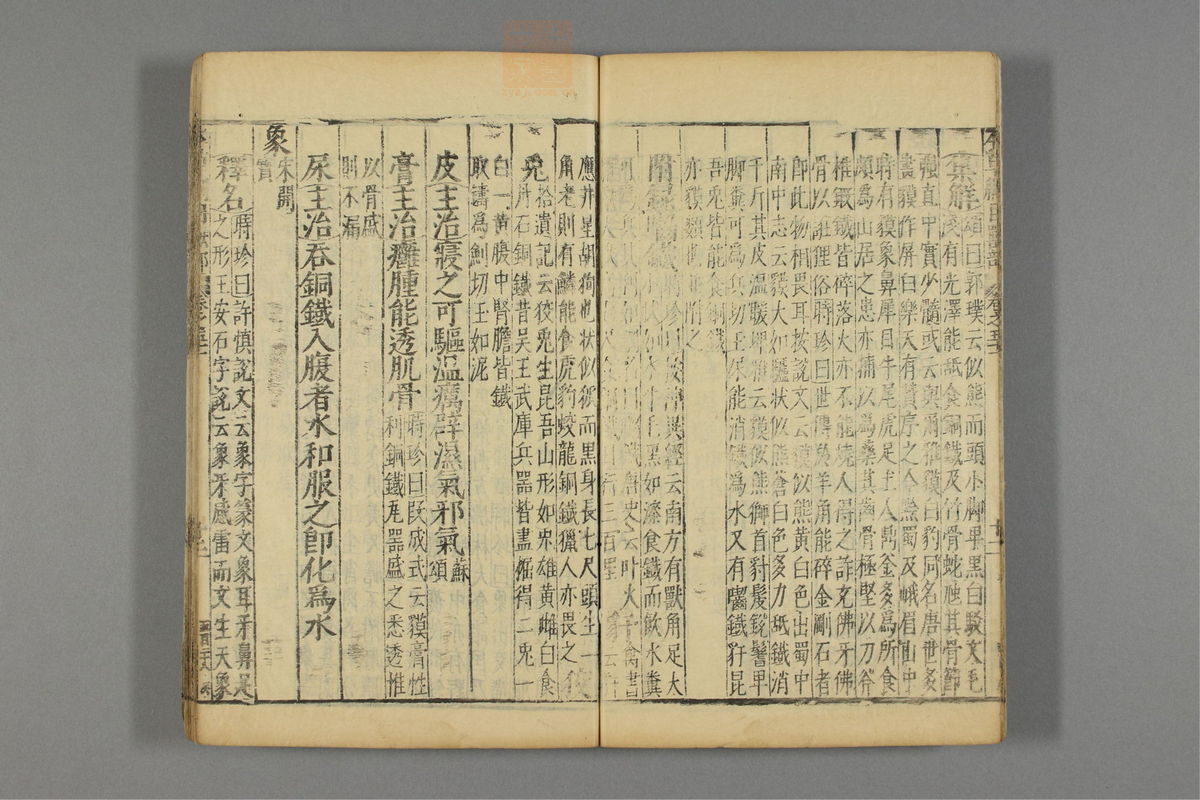 集解頌曰郭璞云似熊而頭小脚卑黑白駁文毛
淺有光澤能舐食銅鐵及竹骨蛇虺其骨節
強直中實少髓或云與爾雅貘白豹同名唐世多
畫貘作屏白樂天有贊序之今黔蜀及峨眉山中
時有貘象鼻犀目牛尾虎足土人鼎釜多爲所食
頗爲山居之患亦捕以爲藥其齒骨極堅以刀斧
椎鍛鐵皆碎落火亦不能燒人得之詐充佛牙佛
骨以誑俚俗時珍曰世傳羚羊角能碎金剛石者
即此物相畏耳按說文云貘似熊黃白色出蜀中
南中志云貘大如驢狀似熊蒼白色多力舐鐵消
千斤其皮溫暖埤雅云貘似熊獅首豺髮銳鬐卑
脚糞可爲兵切玉尿能消鐵爲水又有齧鐵犴昆
吾兔皆能食銅鐵
亦貘類也並附之
附錄齧鐵時珍曰按神異經云南方有獸角足大
小如水牛毛黑如漆食鐵而飲水糞
唐史云吐火
三百里
應井星胡狗也狀似狐而黑身長七尺頭生一
角老則有鱗能食虎豹蛟龍銅鐵獵人亦畏之
兔拾遺記云狡兔生昆吾山形如兔雄黃雌白食
丹石銅鐵昔吳王武庫兵器皆盡掘得二兔一
白一黃腹中腎膽皆鐵
取鑄爲劍切玉如泥
皮主治寢之可驅溫癘辟濕氣邪氣蘇頌
膏主治癰腫能透肌骨時珍曰段成式云貘膏性
利銅鐵瓦器盛之悉透惟
以骨盛
則不漏
尿主治吞銅鐵入腹者水和服之即化爲水
象宋開寶
釋名時珍曰許慎說文云象字篆文象耳牙鼻足
之形王安石字說云象牙感雷而文生天象